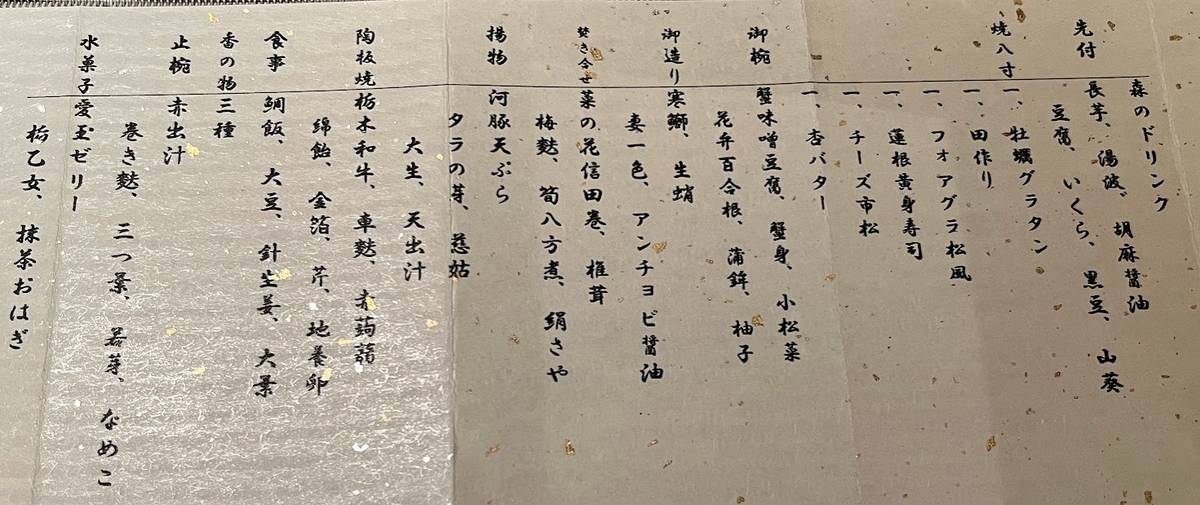 森のドリンク
先付 長芋、湯波、胡麻醤油
豆腐、いくら、黒豆、山葵
焼八寸 一、牡蠣グラタン
一、田作り
一、フォアグラ松風
一、蓮根黄身寿司
一、チーズ市松
一、杏バター
御椀 蟹味噌豆腐、蟹身、小松菜
花弁百合根、蒲鉾、柚子
御造り 寒鰤、生蛸
妻一色、アンチョビ醤油
焚き合せ 菜の花信田巻、椎茸
梅麩、筍八方煮、絹さや
揚物 河豚天ぷら
タラの芽、慈姑
大生、天出汁
陶板焼 栃木和牛、車麩、赤蒟蒻
綿飴、金箔、芹、地養卵
食事 鯛飯、大豆、針生姜、大葉
香の物 三種
止椀 赤出汁
巻き麩、三つ葉、若芽、なめこ
水菓子 愛玉ゼリー
栃乙女、抹茶おはぎ